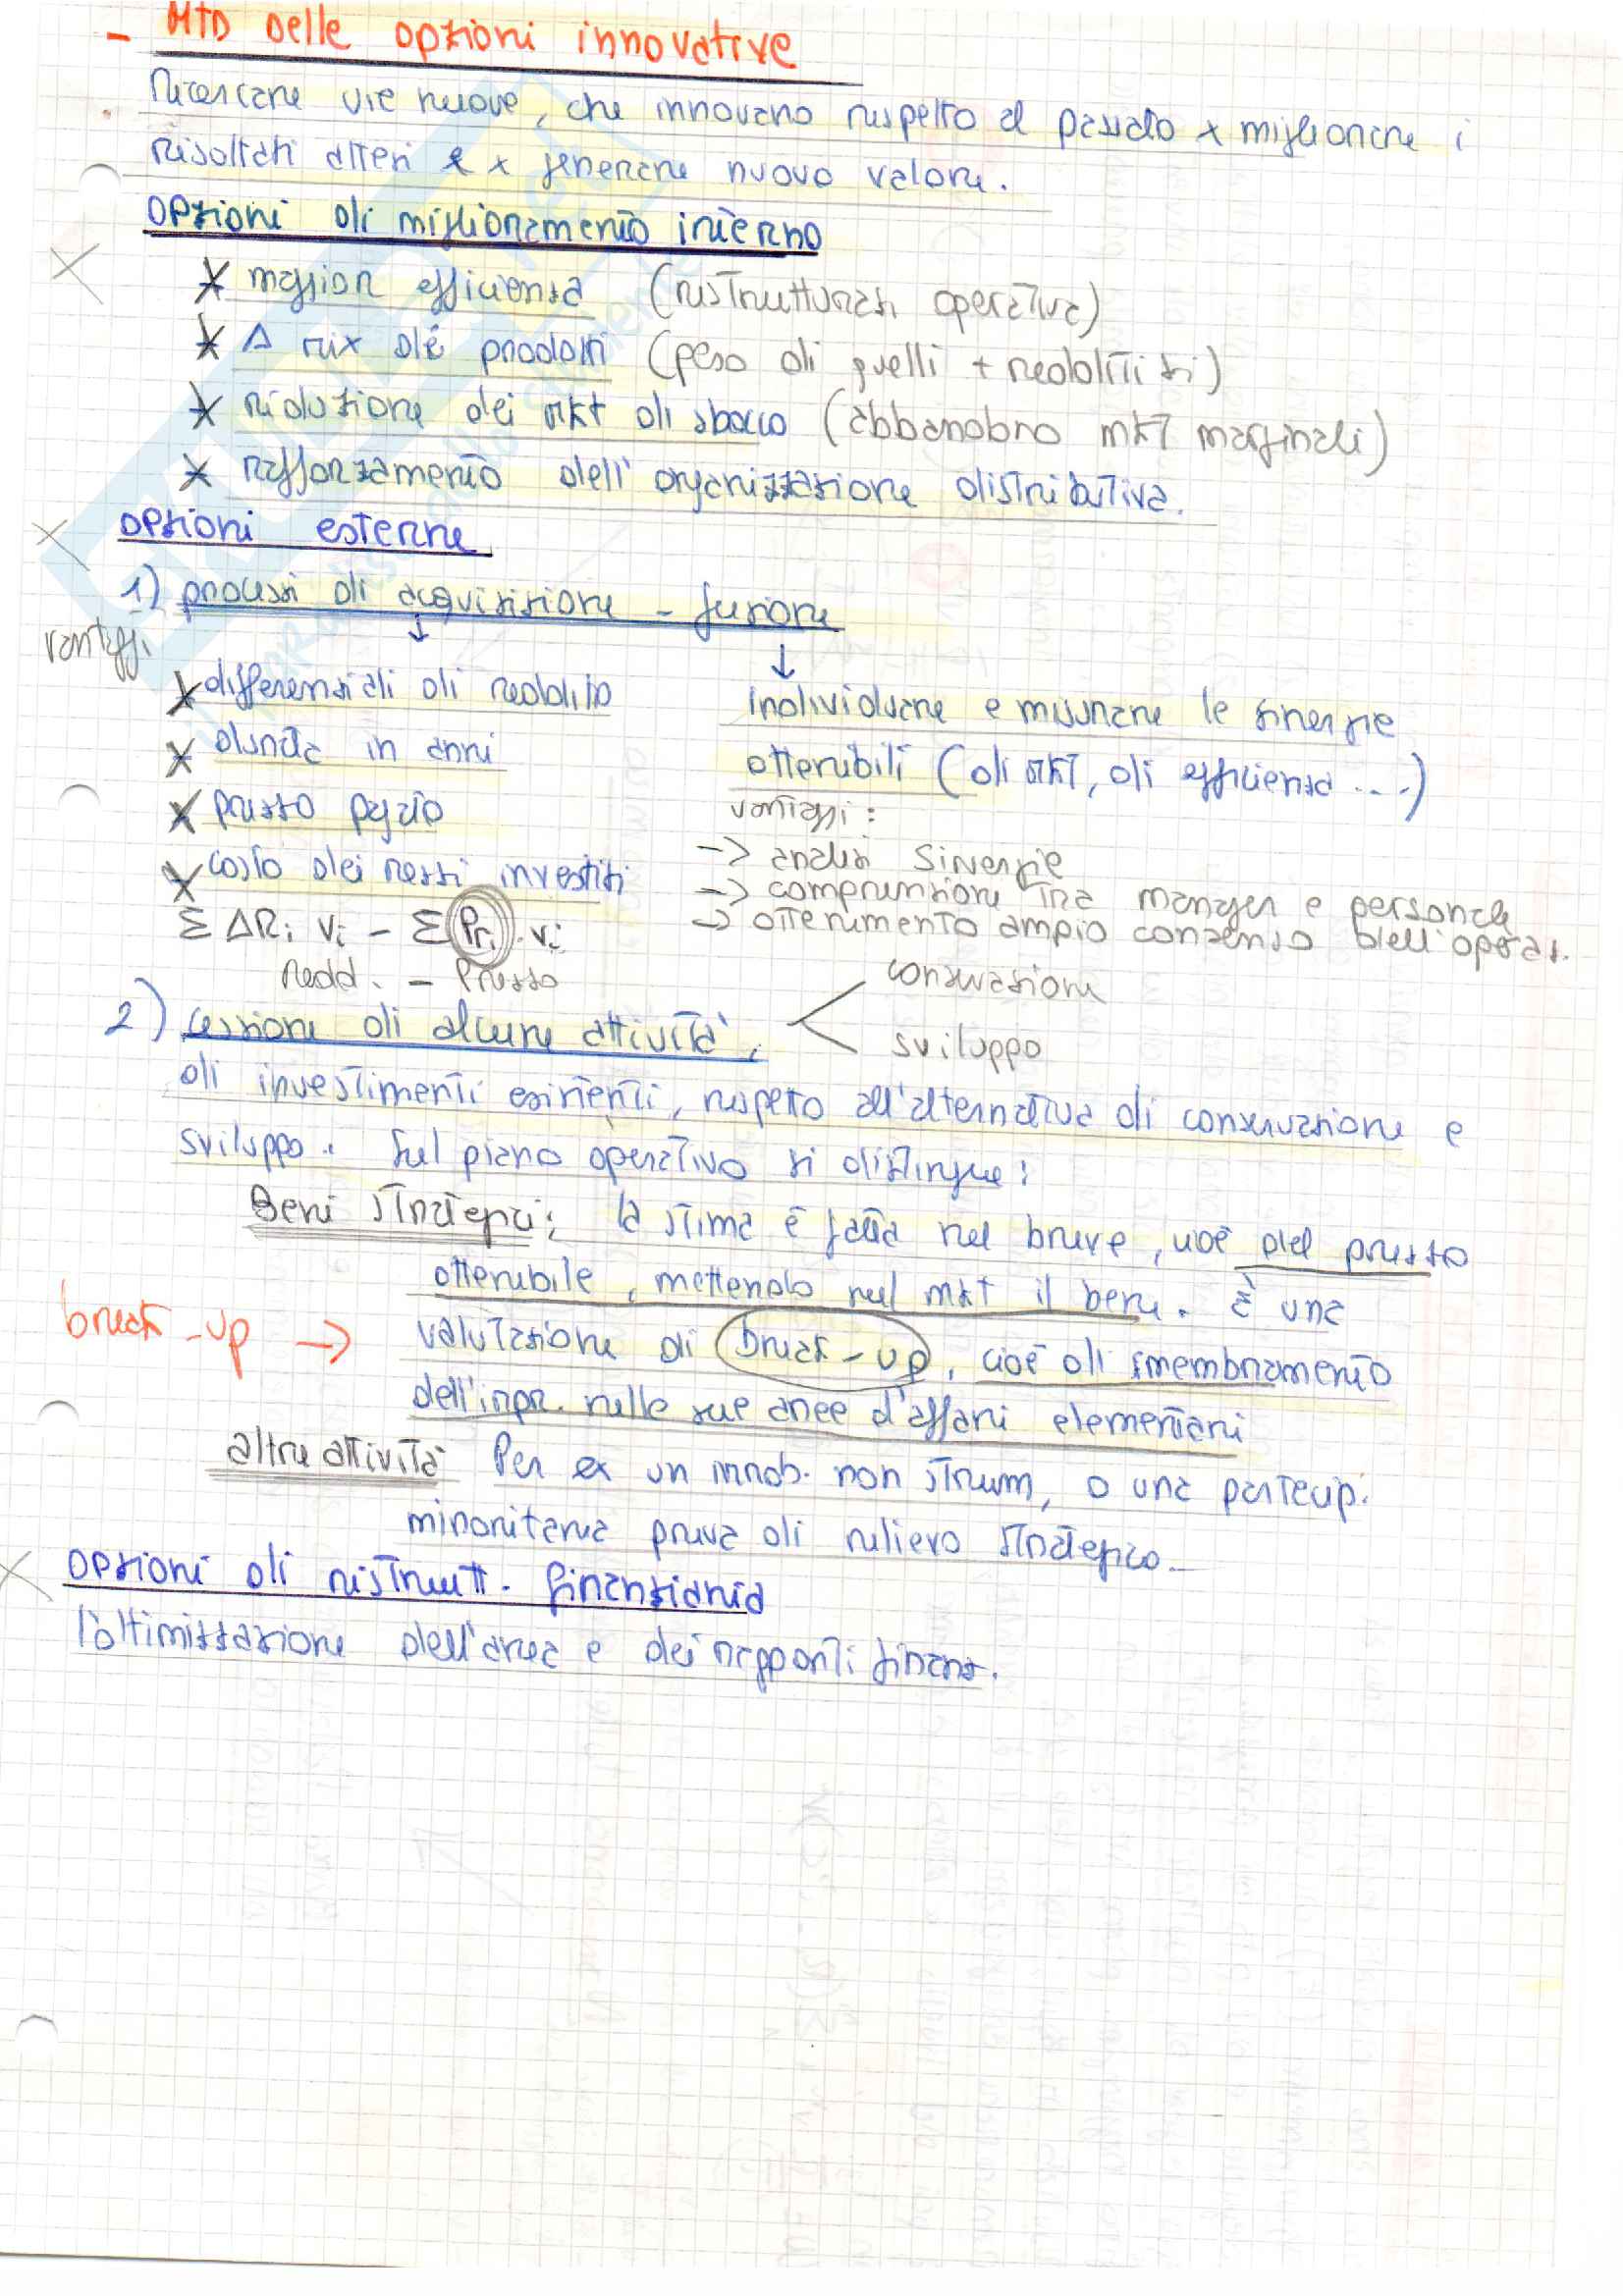 - MTD delle opzioni innovative
Ricercare vie nuove, che innovano rispetto al passato x migliorare i
risultati attesi e x generare nuovo valore.
opzioni di miglioramento interno
* maggior efficienza (ristrutturaz. operativa)
* Δ mix dei prodotti (peso di quelli + redditizi)
* riduzione dei mkt di sbocco (abbandono mkt marginali)
* rafforzamento dell'organizzazione distributiva.
opzioni esterne
1) processi di acquisizione - fusione
vantaggi
↓ ↓
* differenziali di reddito
* durata in anni
* prezzo pagato
* costo dei mezzi investiti
Σ ΔRi vi - Σ Pri . vi
Redd. - Prezzo
individuare e misurare le sinergie
ottenibili (di mkt, di efficienza ...)
vantaggi:
-> analisi sinergie
-> comprensione tra manager e personale
-> ottenimento ampio consenso dell'operaz.
2) cessione di alcune attività,
conservazione
sviluppo
di investimenti esistenti, rispetto all'alternativa di conservazione e
sviluppo. Sul piano operativo si distingue:
Beni strategici: la stima è fatta nel breve, cioè del prezzo
ottenibile, mettendo nel mkt il bene. È una
break-up -> valutazione di break-up, cioè di smembramento
dell'impr. nelle sue aree d'affari elementari
altre attività Per ex un immob. non strum, o una partecip.
minoritaria priva di rilievo strategico.
opzioni di ristrutt. finanziaria
l'ottimizzazione dell'area e dei rapporti finanz.